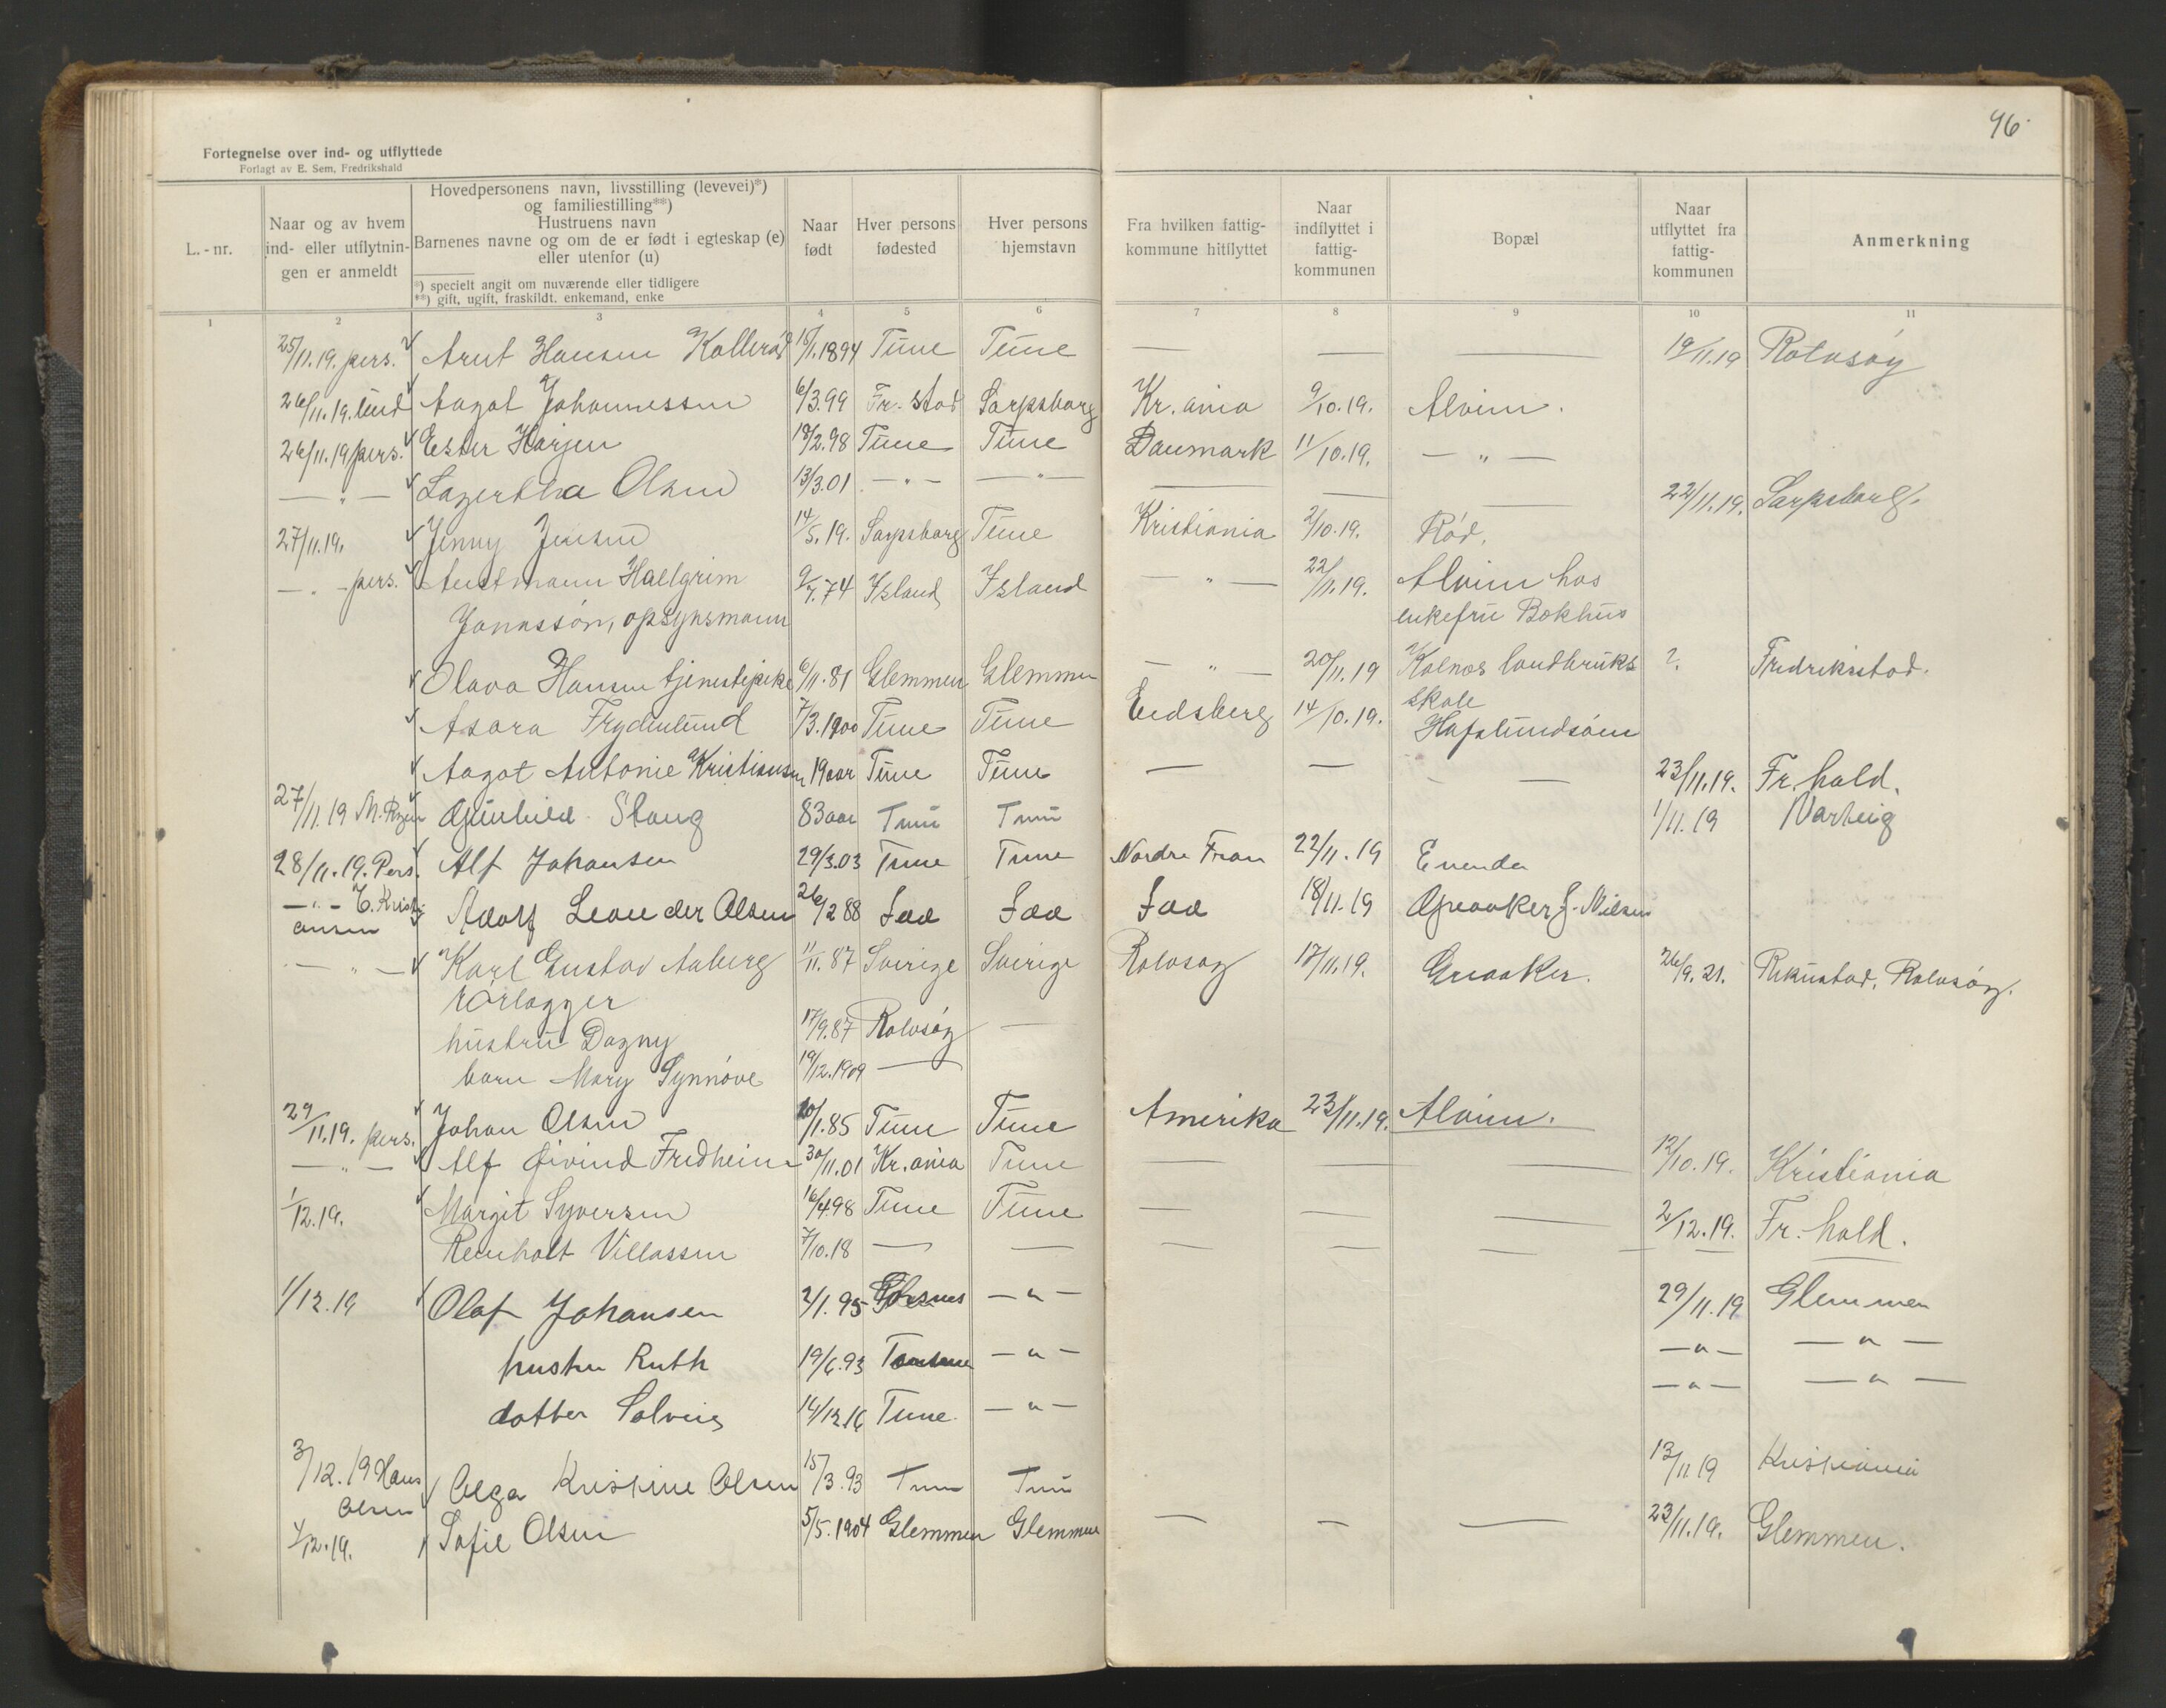 96
Fortegnelse over ind- og utflyttede
Forlagt av E. Sem, Fredrikshald
L.-nr.
Naar og av hvem ind- eller utflytnin-gen er anmeldt
Hovedpersonens navn, livsstilling (levevei)*)
og familiestilling**)
Hustruens navn
Barnenes navne og om de er født i egteskap (e)
eller utenfor (u)
*) specielt angit om nuværende eller tidligere
**) gift, ugift, fraskildt, enkemand, enke
Naar født
Hver persons fødested
Hver persons hjemstavn
Fra hvilken fattig-kommune hitflyttet
Naar indflyttet i fattig-kommunen
Bopæl
Naar utflyttet fra fattig-kommunen
Anmerkning
1 2 3 4 5 6 7 8 9 10 11
25/11.19. pers. Arnt Hansen Kallerød 1894 Tune Tune — — — 19/11.19 Rolvsøy
26/11.19. Aagot Johannessen 6/3.99 Fr.stad Sarpsborg Kr.ania 9/10.19. Alvim.
26/11.19 pers. Ester Harjen 19/2.98 Tune Tune Danmark 11/10.19. — " —
— " — Lagertha Olsen 13/3.01 — " — — " — — — — 22/11.19. Sarpsborg.
27/11.19. Jenny Jensen 14/5.19. Sarpsborg Tune Kristiania 2/10.19. Rød.
— " — pers. Austmann Hallgrim 9/7.74 Island Island — " — 22/11.19. Alvim hos
Jonassøn, opsynsmann enkefru Bokhus
Olava Hansen tjenestepike 6/11.81 Glemmen Glemmen — " — 20/11.19 Kalnes landbruks ? Fredriksstad.
skole
Asora Frydenlund 7/3.1900 Tune Tune Eidsberg 14/10.19. Hafslundsøen
Aagot Antonie Kristiansen 19 aar Tune Tune — — — 23/11.19. Fr.hald.
27/11.19 Gunhild Stang 83 aar Tune Tune 1/11.19 Varteig
28/11.19. Pers. Alf Johansen 29/3.03 Tune Tune Nordre Fron 22/11.19 Enenda
— " — E. Kristi-
ansen Adolf Leander Olsen 26/2 88 Laa Laa Laa 18/11.19 Greaaker J. Nilsen
— " — Karl Gustav Aaberg 11/11.87 Sverige Sverige Rolvsøy 17/11.19. Greaaker. 26/9.21. Rolvsøy.
rørlægger
hustru Dagny 17/9.87 Rolvsøy —
barn Mary Synnøve 19/12.1909 —
29/11.19. pers. Johan Olsen 20/1.85 Tune Tune Amerika 23/11.19. Alvim.
— " — Alf Øivind Fredheim 30/11.01 Kr.ania Tune — — — 12/10.19. Kristiania
1/12.19. Margit Syversen 16/4.98 Tune Tune — — — 2/12.19. Fr.hald.
Reinholt Villassen 7/10.18 — — — — — — —
1/12.19 Olaf Johansen 2/1.95 — " — 29/11.19 Glemmen
hustru Ruth 19/6.93 — " — — " — — " —
datter Solveig 14/12.16 Tune. — " — — " — — " —
3/12.19 Hans
Olsen Olga Kristine Olsen 15/3.93 Tune Tune 13/11 19 Kristiania
4/12.19. Sofie Olsen 5/5.1904 Glemmen Glemmen — — — 23/11.19. Glemmen.